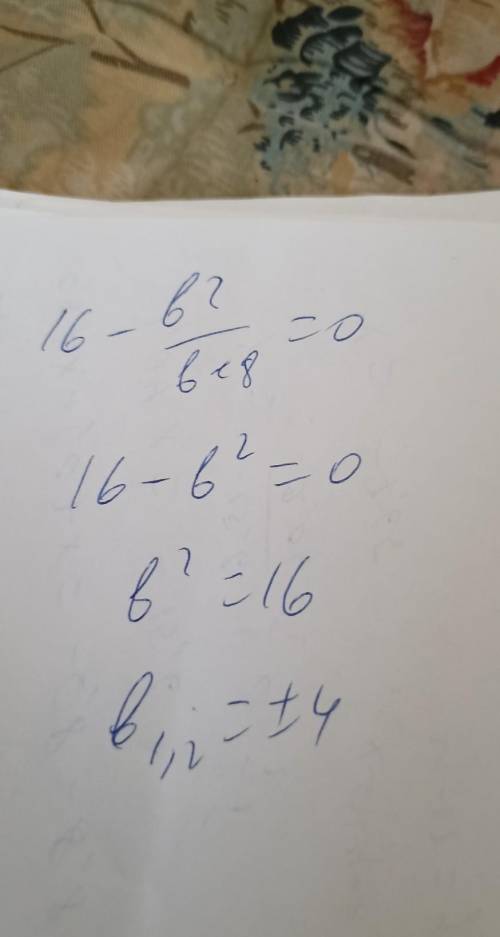 16 - b²/b+8 = 0
16 - b² = 0
b² = 16
b₁,₂ = ±4